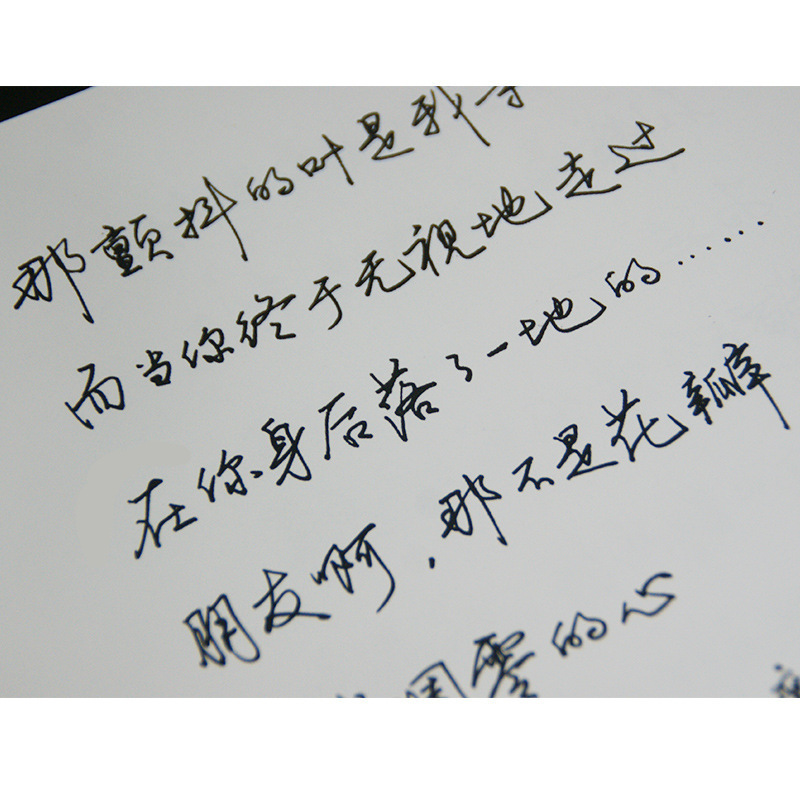 那颤抖的叶是我
而当你终于无视地走过
在你身后落了一地的……
朋友啊，那不是花瓣
凋零的心